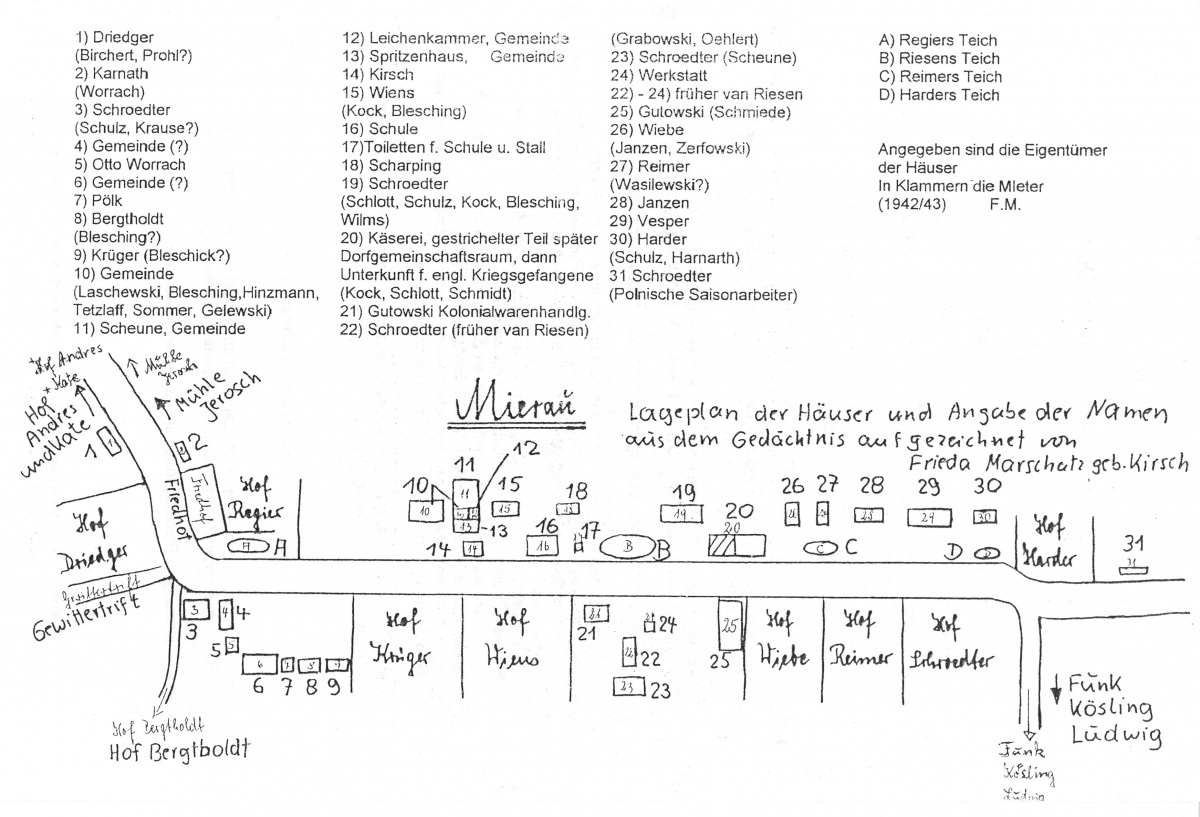 1) Driedger
(Birchert, Prohl?)
2) Karnath
(Worrach)
3) Schroedter
(Schulz, Krause?)
4) Gemeinde (?)
5) Otto Worrach
6) Gemeinde (?)
7) Pölk
8) Bergtholdt
(Blesching?)
9) Krüger (Bleschick?)
10) Gemeinde
(Laschewski, Blesching,Hinzmann,
Tetzlaff, Sommer, Gelewski)
11) Scheune, Gemeinde
12) Leichenkammer, Gemeinde
13) Spritzenhaus, Gemeinde
14) Kirsch
15) Wiens
(Kock, Blesching)
16) Schule
17)Toiletten f. Schule u. Stall
18) Scharping
19) Schroedter
(Schlott, Schulz, Kock, Blesching,
Wilms)
20) Käserei, gestrichelter Teil später
Dorfgemeinschaftsraum, dann
Unterkunft f. engl. Kriegsgefangene
(Kock, Schlott, Schmidt)
21) Gutowski Kolonialwarenhandlg.
22) Schroedter (früher van Riesen)
(Grabowski, Oehlert)
23) Schroedter (Scheune)
24) Werkstatt
22) - 24) früher van Riesen
25) Gutowski (Schmiede)
26) Wiebe
(Janzen, Zerfowski)
27) Reimer
(Wasilewski?)
28) Janzen
29) Vesper
30) Harder
(Schulz, Harnarth)
31 Schroedter
(Polnische Saisonarbeiter)
A) Regiers Teich
B) Riesens Teich
C) Reimers Teich
D) Harders Teich
Angegeben sind die Eigentümer
der Häuser
In Klammern die MIeter
(1942/43) F.M.
Hof Andres
+ Kate
Mühle
Jerosch
Hof
Andres
und Kate
Mühle
Jerosch
Mieraŭ
Lageplan der Häuser und Angabe der Namen
aus dem Gedächtnis aufgezeichnet von
Frieda Marschatz geb. Kirsch
1
2
10
11
12
13
14
15
16
17
18
19
20
26
27
28
29
30
31
10
11
13
14
15
16
18
19
20
28
29
30
31
Friedhof
Friedhof
Hof
Regier
A
A
B
B
C
C
D
D
Hof
Harder
Hof
Driedger
Gewittertrift
Gewittertrift
3
3
4
4
5
5
6
6
7
7
8
8
9
9
Hof
Krüger
Hof
Wiens
21
21
22
22
23
23
24
25
25
Hof
Wiebe
Hof
Reimer
Hof
Schroedter
Hof Bergtholdt
Hof Bergtboldt
Fŭnk
Kösling
Lŭdwig
Fŭnk
Kösling
Lŭdwig